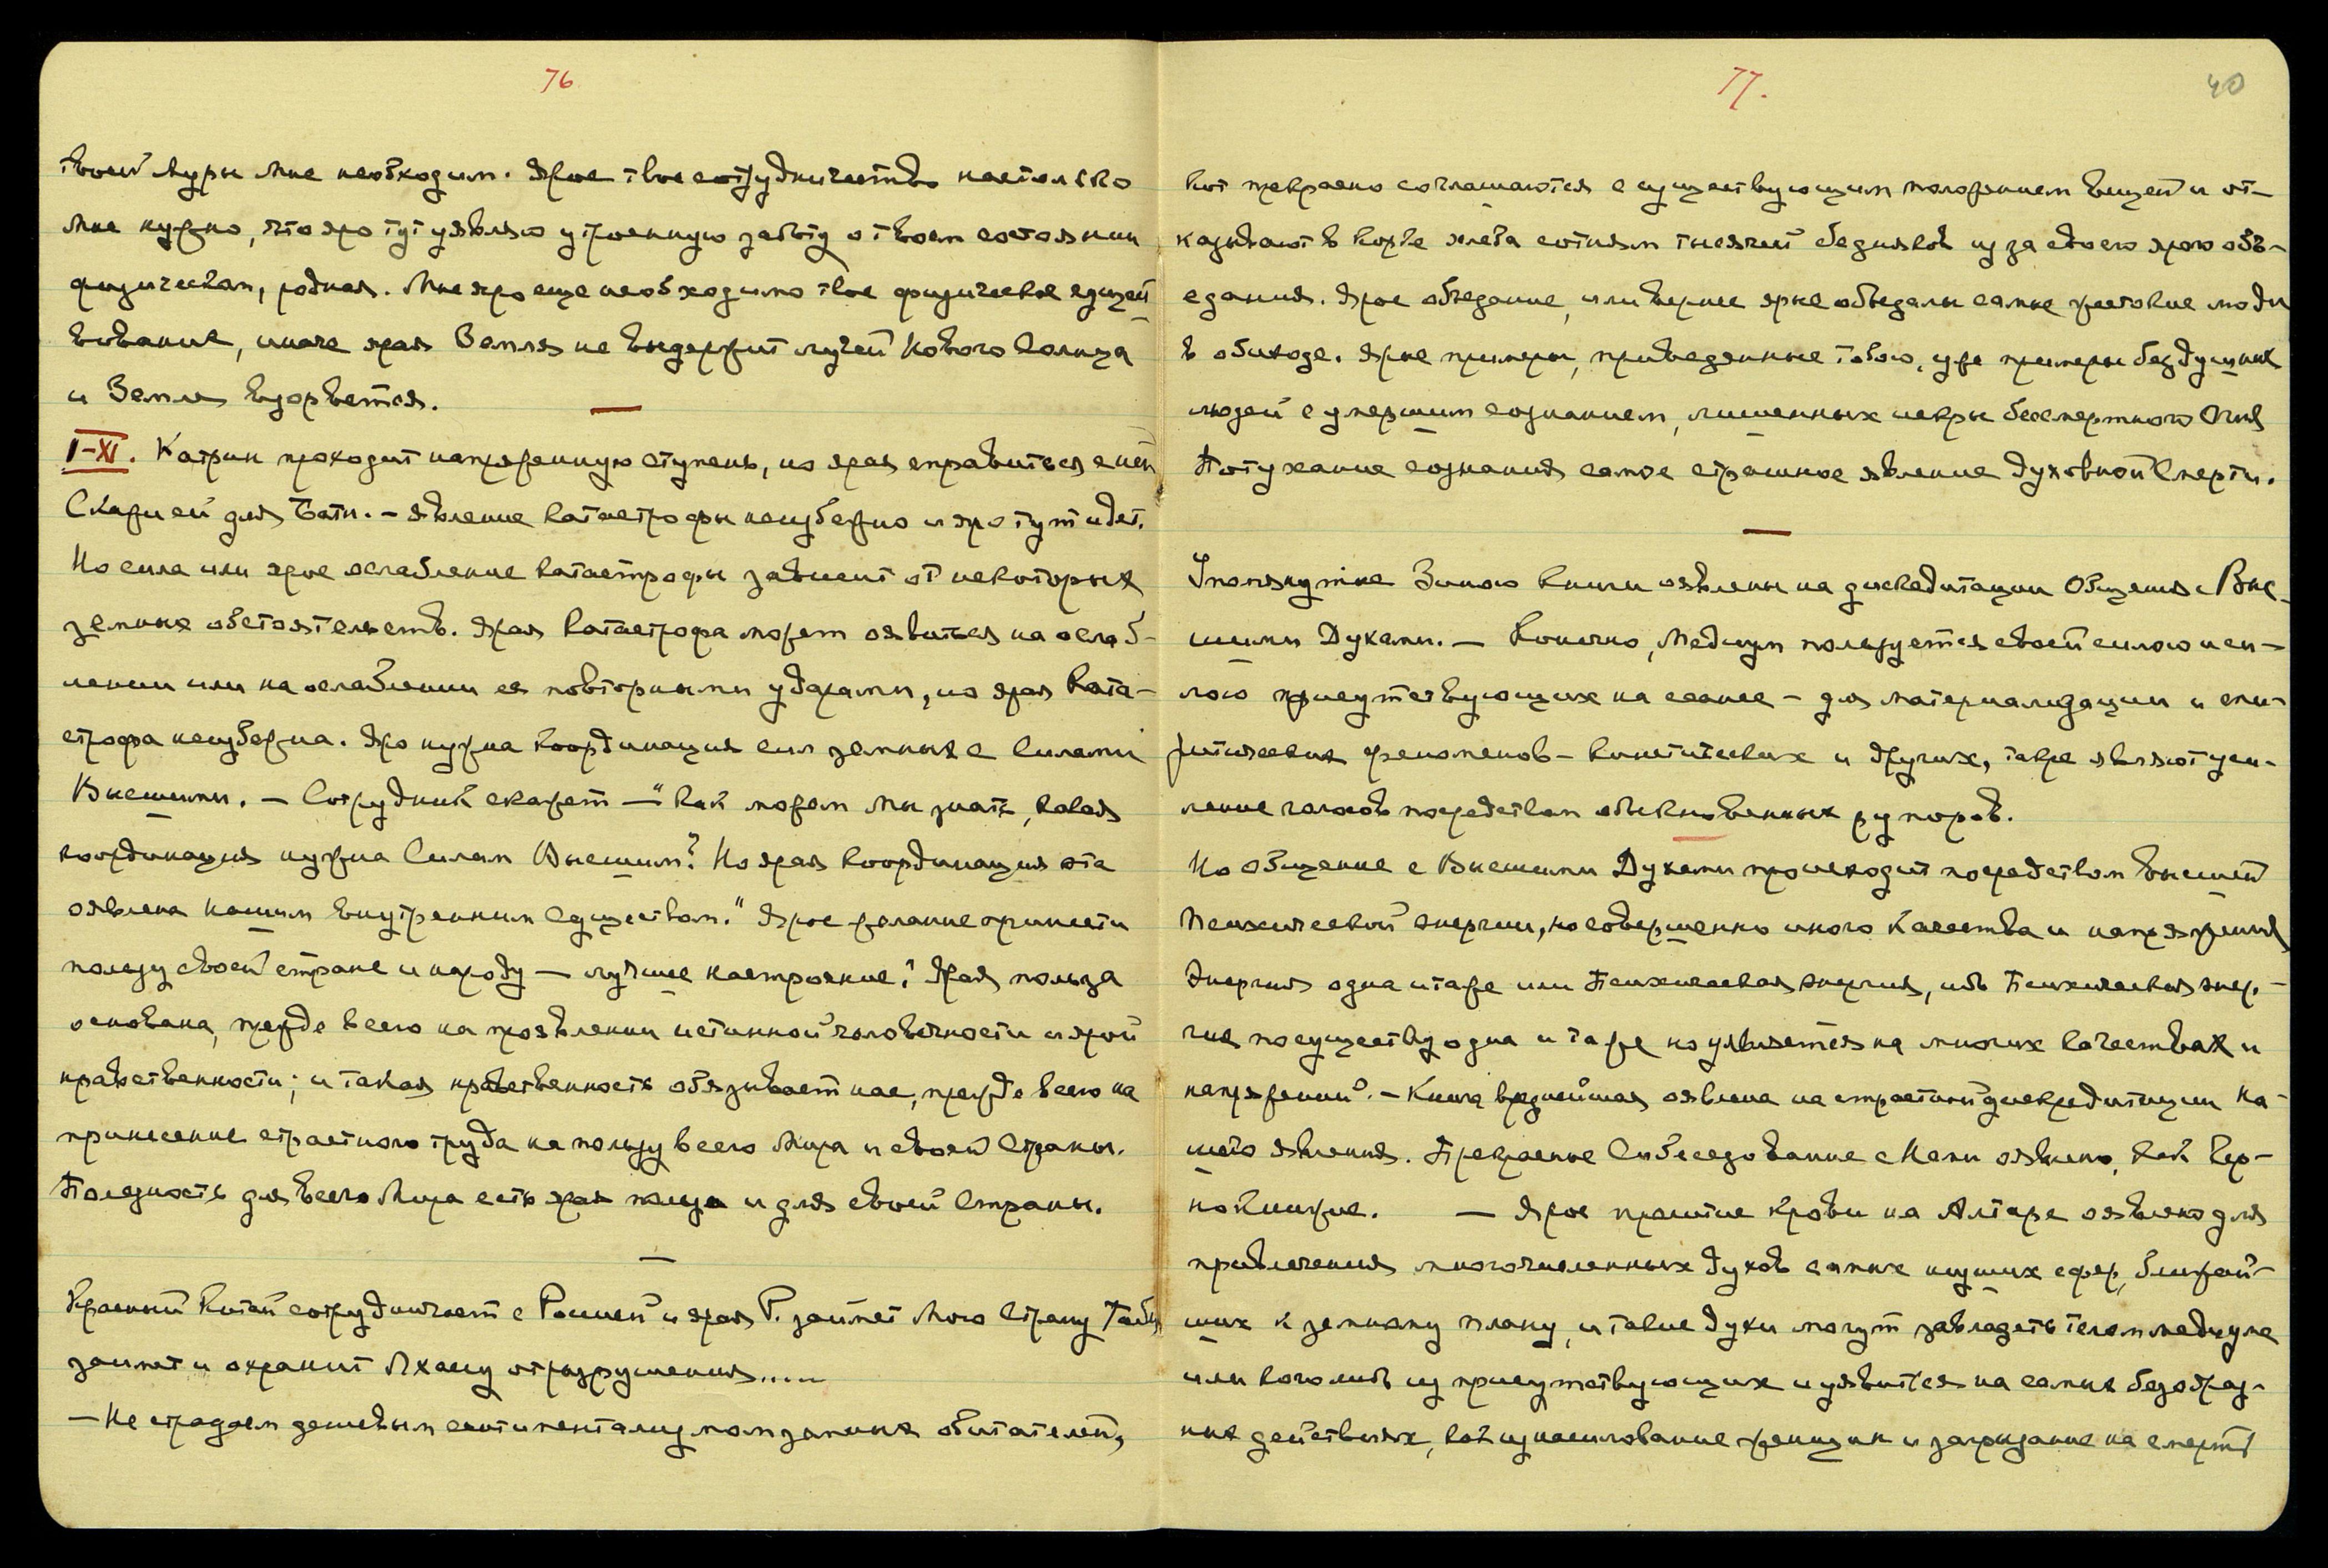 76
твоей Ауры Мне необходим. Ярое твое сотрудничество настолько
Мне нужно, что яро тут являю утроенную заботу о твоем состоянии
физическом, родная. Мне яро еще необходимо твое физическое
иначе ярая Земля не выдержит лучей Нового Солнца
и Земля взорвется.
1-XI. Катрин проходит напряженную ступень, но ярая справиться с ней
Скажи ей для Бати. – Явление катастрофы неизбежно и яро тут идет.
Но сила или ярое ослабление катастрофы зависит от некоторых
земных обстоятельств. Ярая катастрофа может оявиться на ослаб-
лении или на ослаблении ея повторными ударами, но ярая ката-
строфа неизбежна. Яро нужна координация сил земных с Силами
Высшими. – Сотрудник скажет – "Как можем мы знать, какая
координация нужна Силам Высшим? Но ярая координация эта
оявлена нашим внутренним Существом." Ярое желание принести
пользу своей стране и народу – лучшее настроение! Ярая польза
основана, прежде всего на проявлении истинной человечности и ярой
нравственности; и такая нравственность обязывает нас, прежде всего на
принесение страстного труда на пользу всего Мира и своей Страны.
Полезность для всего Мира есть ярая польза и для своей Страны.
Красный Китай сотрудничает с Россией и ярая Р. займет Мою Страну
займет и охранит Лхассу от разрушения.....
– Не страдаем дешевым сентиментализмом земных обитателей,
77.
40
кот прекрасно соглашаются с существующим положением вещей и от-
казывают в корке хлеба сотням тысячей бедняков из за своего ярого объ-
едания. Ярое объедание, или вернее ярые объедалы самые жестокие люди
в обиходе. Ярые примеры, приведенные тобою, уже примеры бездушных
людей с умершим сознанием, лишенных искры бессмертного Огня
Потухание сознания самое страшное явление духовной Смерти.
Упомянутые Зиною книги оявлены на дискредитации Общения с Выс-
шими Духами. – Конечно, Медиум пользуется своей силою и си-
лою присутствующих на сеансе – для материализации и спи-
ритических феноменов – кинетических и других, также являют уси-
ление голосов посредством обыкновенных рупоров.
Но общение с Высшими Духами происходит посредством высшей
Психической энергии, но совершенно иного Качества и напряжения
Энергия одна и таже или Психическая энергия, ибо Психическая энер-
гия по существу одна и таже но уявляется на многих качествах и
напряжений. – Книга вреднейшая оявлена на страстной дискредитации На-
шего явления. Прекрасное Собеседование с Нами оявлено, как
– Ярое пролитие крови на Алтаре оявлено для
привлечения многочисленных духов самых низших сфер, ближай-
ших к земному плану, и такие духи могут завладеть телом медиума
или кого либо из присутствующих и уявиться на самых безобраз-
ных действиях, как изнасилование женщин и загрызание на смерть